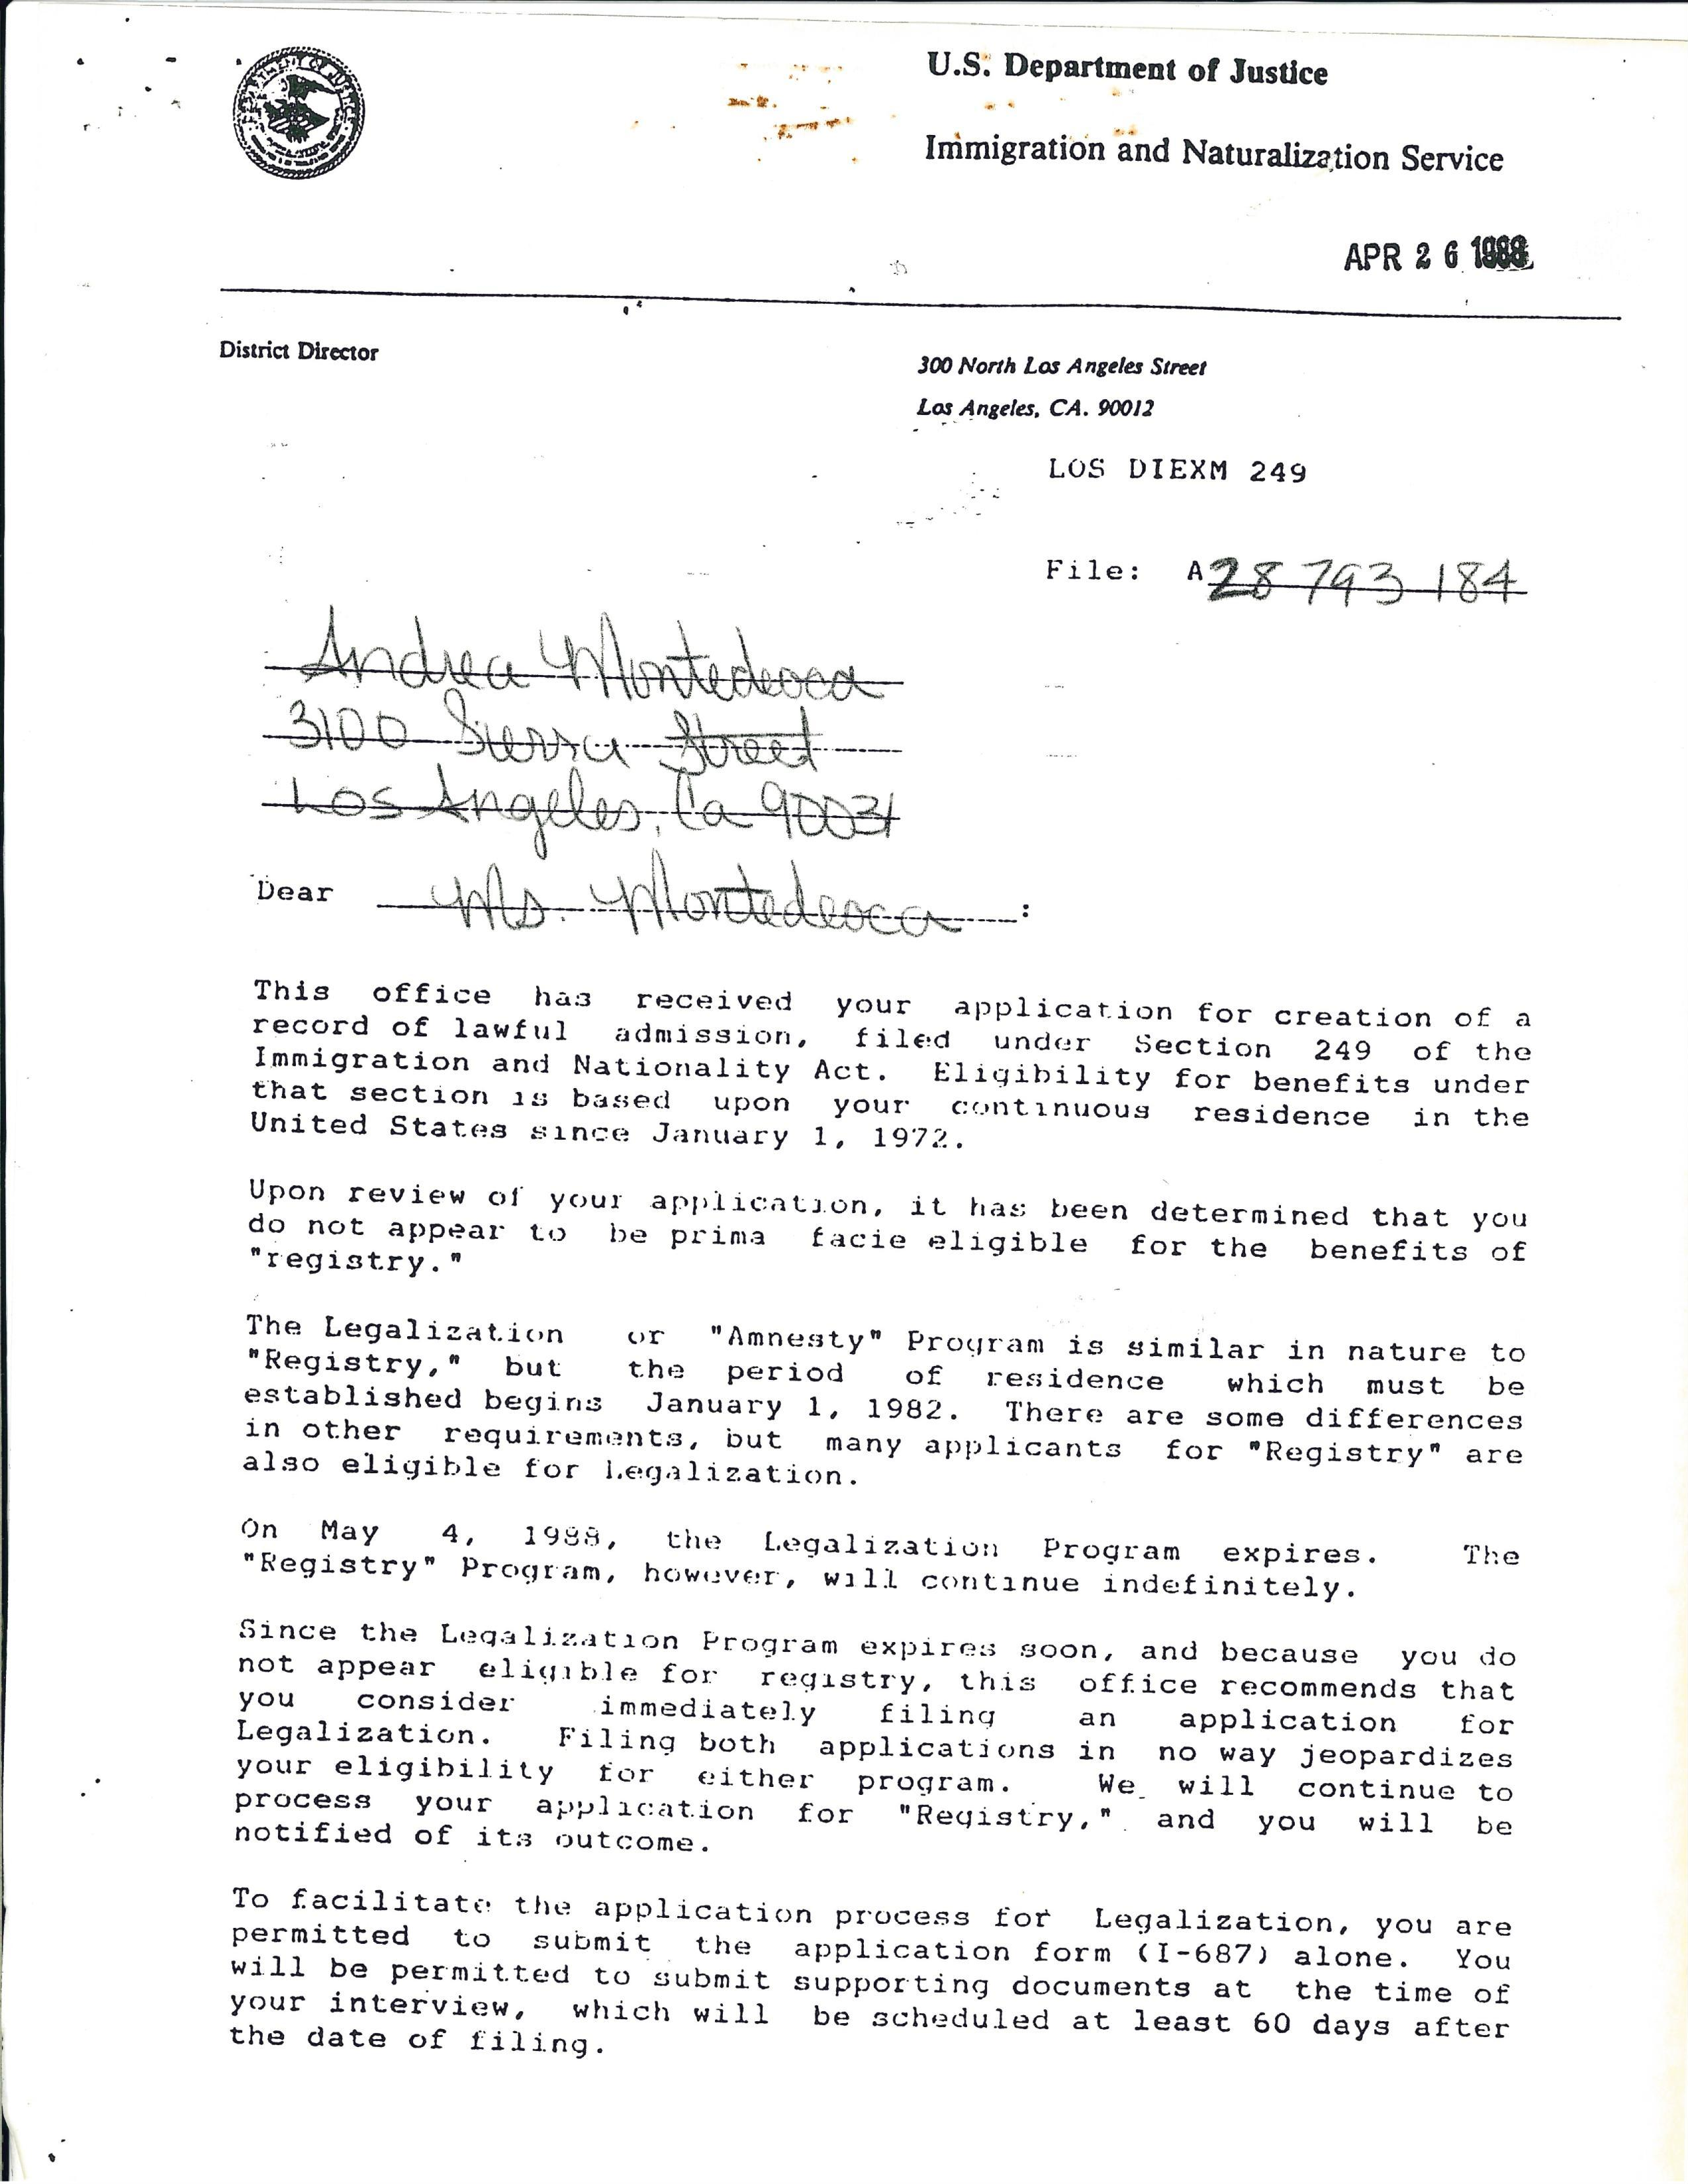 U.S. Department of Justice
Immigration and Naturalization Service
APR 26 1988
District Director
300 North Los Angeles Street
Los Angeles, CA. 90012
LOS DIEXM 249
File: A28 793 184
Andrea Montedeoca
3100 Sierra Street
Los Angeles, Ca 90031
Dear Ms. Montedeoca:
This office has received your application for creation of a
record of lawful admission, filed under Section 249 of the
Immigration and Nationality Act. Eligibility for benefits under
that section is based upon your continuous residence in the
United States since January 1, 1972.
Upon review of your application, it has been determined that you
do not appear to be prima facie eligible for the benefits of
"registry."
The Legalization or "Amnesty" Program is similar in nature to
"Registry," but the period of residence which must be
established begins January 1, 1982. There are some differences
in other requirements, but many applicants for "Registry" are
also eligible for Legalization.
On May 4, 1988, the Legalization Program expires. The
"Registry" Program, however, will continue indefinitely.
Since the Legalization Program expires soon, and because you do
not appear eligible for registry, this office recommends that
you consider immediately filing an application for
Legalization. Filing both applications in no way jeopardizes
your eligibility for either program. We will continue to
process your application for "Registry," and you will be
notified of its outcome.
To facilitate the application process for Legalization, you are
permitted to submit the application form (I-687) alone. You
will be permitted to submit supporting documents at the time of
your interview, which will be scheduled at least 60 days after
the date of filing.